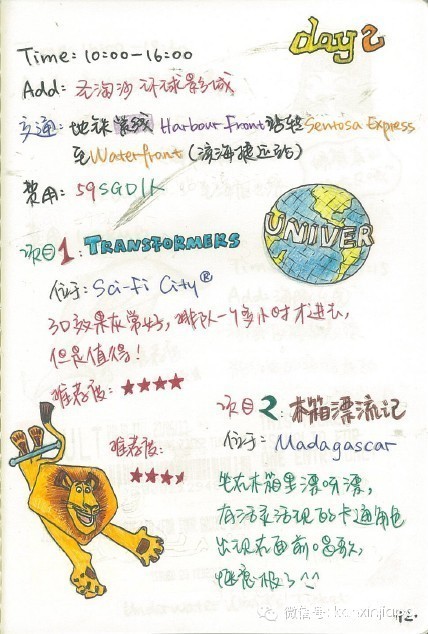 day 2
Time: 10:00-16:00
Add: 圣淘沙环球影城
交通: 地铁紫线 Harbour Front站转Sentosa Express
至Waterfront (滨海捷运站)
费用: 59SGD/人
UNIVER
项目1: TRANSFORMERS
位于: Sci-Fi City®
3D效果非常好, 排队一个多小时才进去,
但是值得!
推荐度: ★★★★
项目2: 木箱漂流记
位于: Madagascar
推荐度:
★★★★
坐在木箱里漂呀漂,
有活灵活现的卡通角色
出现在面前唱歌,
惬意极了^^
微信号: